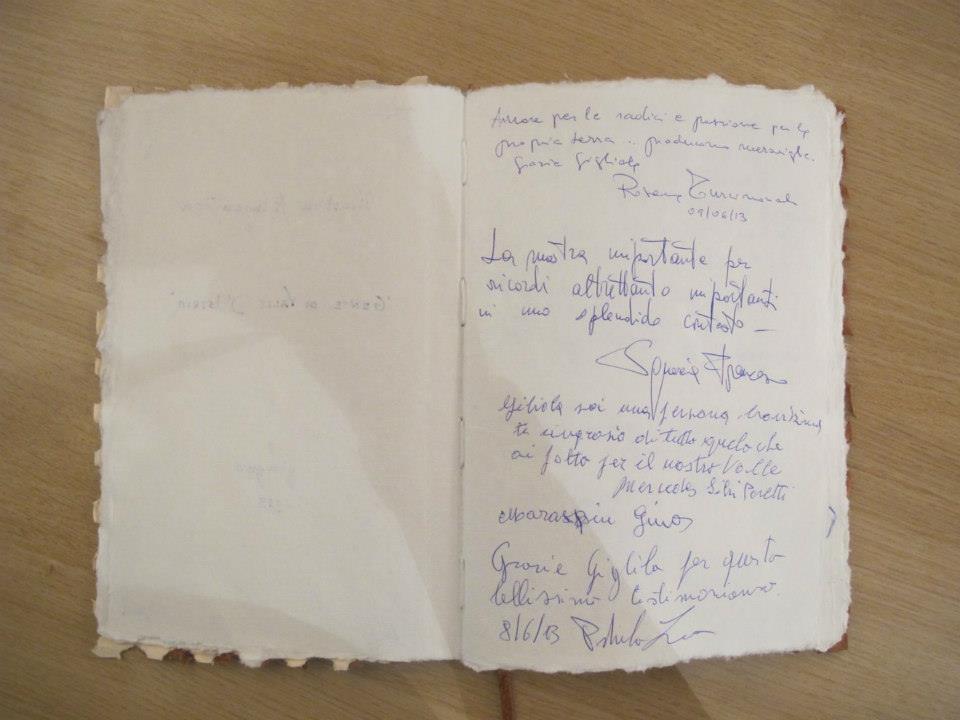 Amore per le radici e passione per la
propria terra .. producono meraviglie.
Grazie Gigliola
09/06/13
La mostra importante per
ricordi altrettanto importanti
in uno splendido contesto —
Gigliola sei una persona bravissima
te ringrasio di tutto quelo che
ai fatto per il nostro Valle
Mercedes Silvi Peretti
Maraspin Gino
Grazie Gigliola per questa
bellissima testimonianza.
8/6/13